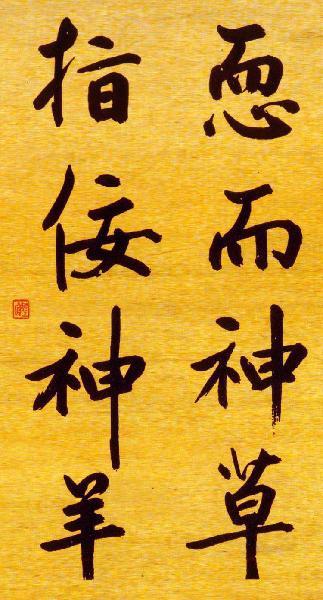 恧而神草
指佞神羊